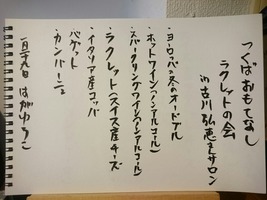 つくばおもてなし
ラクレットの会
in 古川弘恵さんサロン
・ヨーロッパ冬のオードブル
・ホットワイン(ノンアルコール)
・スパークリングワイン(ノンアルコール)
・ラクレット(スイス産チーズ)
・イタリア産コッパ
・バゲット
・カンパーニュ
一月二十九日 はがゆうこ